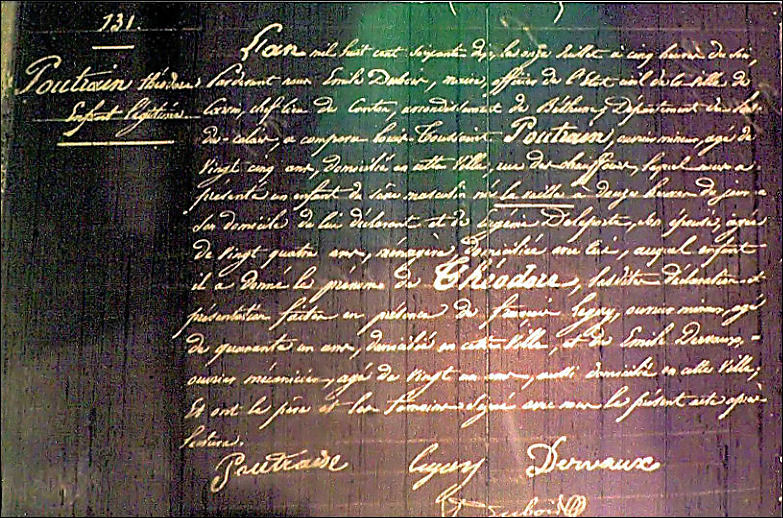 131.
Poutrain théodore
Enfant légitimé
L'an mil huit cent soixante dix, le onze Juillet à cinq heures du soir,
Pardevant nous Emile Dubois, maire, officier de l'état civil de la ville de
chef lieu de Canton, arrondissement de Béthune, Département du Pas-
de-calais, a comparu Louis Toussaint Poutrain, ouvrier mineur, agé de
vingt cinq ans, domicilié en cette ville, rue des chauffours, lequel nous a
présenté un enfant du sexe masculin né la veille à douze heures du jour à
son domicile de lui déclarant et de Delaporte, son épouse, agée
de vingt quatre ans, ménagère, domiciliée avec lui, auquel enfant
il a donné le prénom de Théodore, lesdites déclaration et
présentation faites en présence de françois Legny, ouvrier mineur, agé
de quarante un ans, domicilié en cette ville, et de Emile Dervaux,
ouvrier mécanicien, agé de vingt un ans, aussi domicilié en cette ville;
Et ont le père et les témoins signé avec nous le présent acte après
lecture.
Dervaux
Dubois